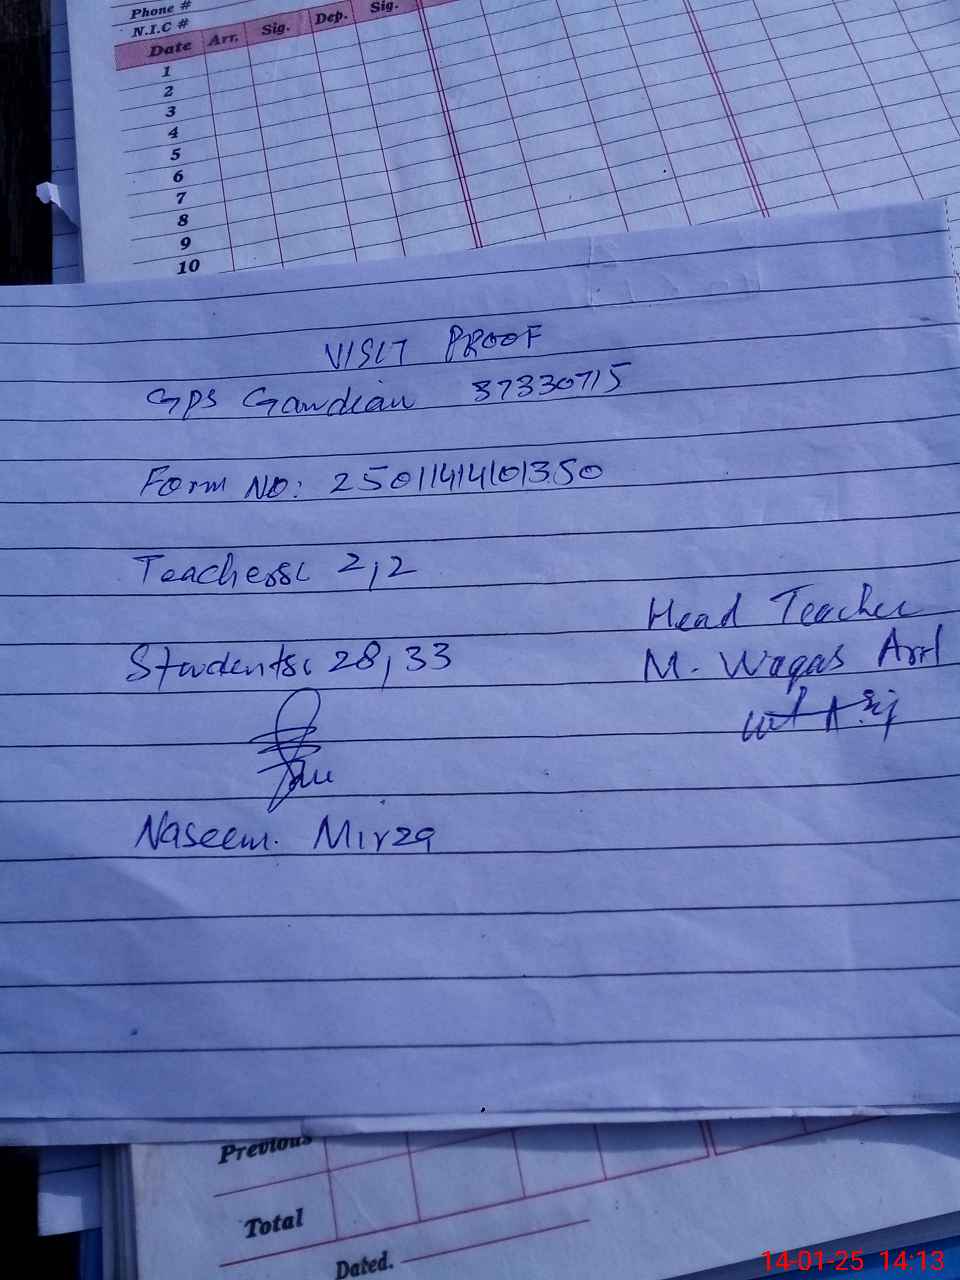 Phone #
N.I.C #
Date Arr. Sig. Dep. Sig.
1
2
3
4
5
6
7
8
9
10
VISIT PROOF
GPS Gandian 37330715
Form NO: 25011414101350
Teachers: 2,2
Head Teacher
Students: 28,33
M. Waqas Arif
Naseem. Mirza
Previous
Total
Dated.
14-01-25 14:13